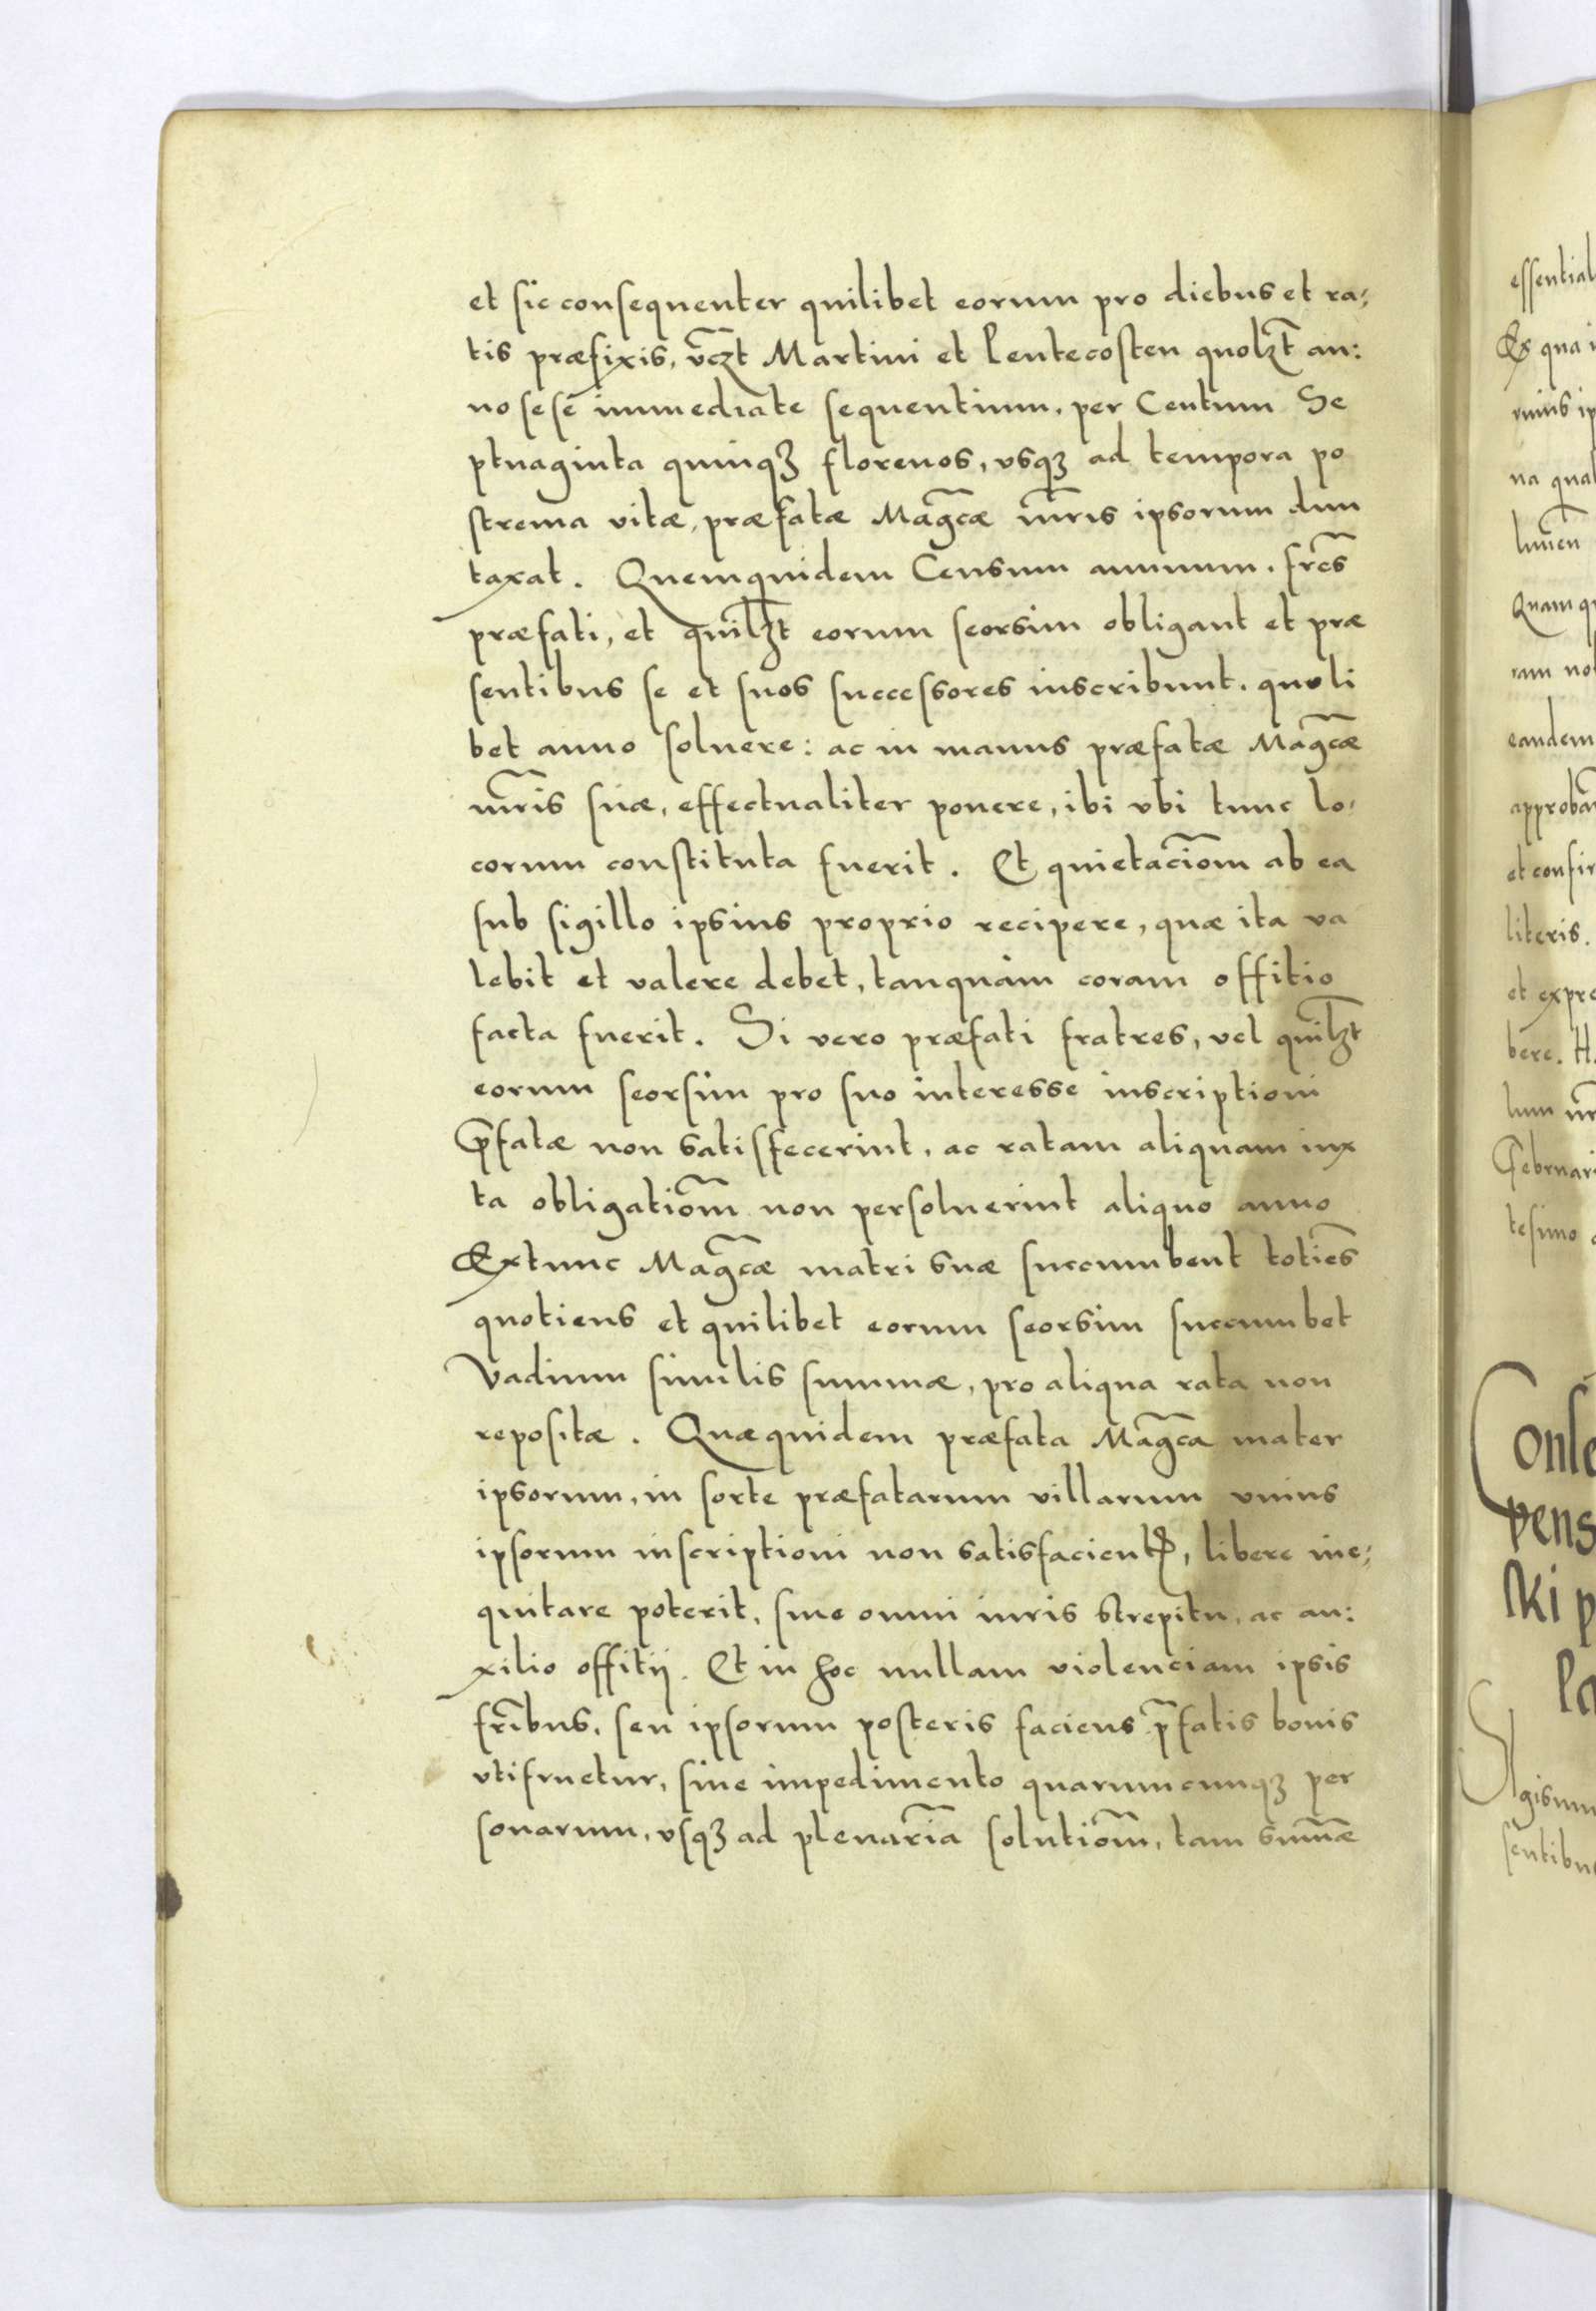 et sic consequenter quilibet eorum pro diebus et ra⸗
tis præfixis, vc̃zt Martini et Pentecosten quolꝫt̃ an:
no sesẽ immediate sequentium, per Centum Se
ptuaginta quinqꝫ florenos, vsqꝫ ad tempora po
strema vitæ, præfatæ Mag̃cæ mr̃is ipsorum dun
taxat. Quemquidem Censum annuum, fr̃es
præfati, et quilꝫt̃ eorum seorsim obligant et præ
sentibus se et suos successores inscribunt, quoli
bet anno soluere: ac in manus præfatæ Mag̃cæ
mr̃is suæ, effectualiter ponere, ibi vbi tunc lo⸗
corum constituta fuerit. Et quietaciõm ab ea
sub sigillo ipsius proprio recipere, quæ ita va
lebit et valere debet, tanquàm coram offitio
facta fuerit. Si vero præfati fratres, vel quilꝫt̃
eorum seorsim pro suo interesse inscriptioni
p̃fatæ non satisfecerint, ac ratam aliquam iux
ta obligatiõm non persoluerint aliquo anno
Extunc Mag̃cæ matri suæ succumbent totiẽs
quotiens et quilibet eorum seorsim succumbet
Vadium similis summæ, pro aliqua rata non
repositæ. Quæquidem præfata Mag̃ca mater
ipsorum, in sorte præfatarum villarum vnius
ipsorum inscriptioni non satisfacientꝭ, libere ine⸗
quitare poterit, sine omni iuris strepitu, ac au:
xilio offitij. Et in hoc nullam violenciam ipsis
fr̃ibus, seu ipsorum posteris faciens p̃fatis bonis
vtifruetur, sine impedimento quarumcunqꝫ per
sonarum, vsqꝫ ad plenar̃ia solutiõm, tam sum̃æ
essential
Ex qua i
na qual
Quam qu
ram no
eandem
approba
et confir
literis.
et expre
bere. H
Februari
tesimo
Conse
pens
ski p
la
gismu
sentibu